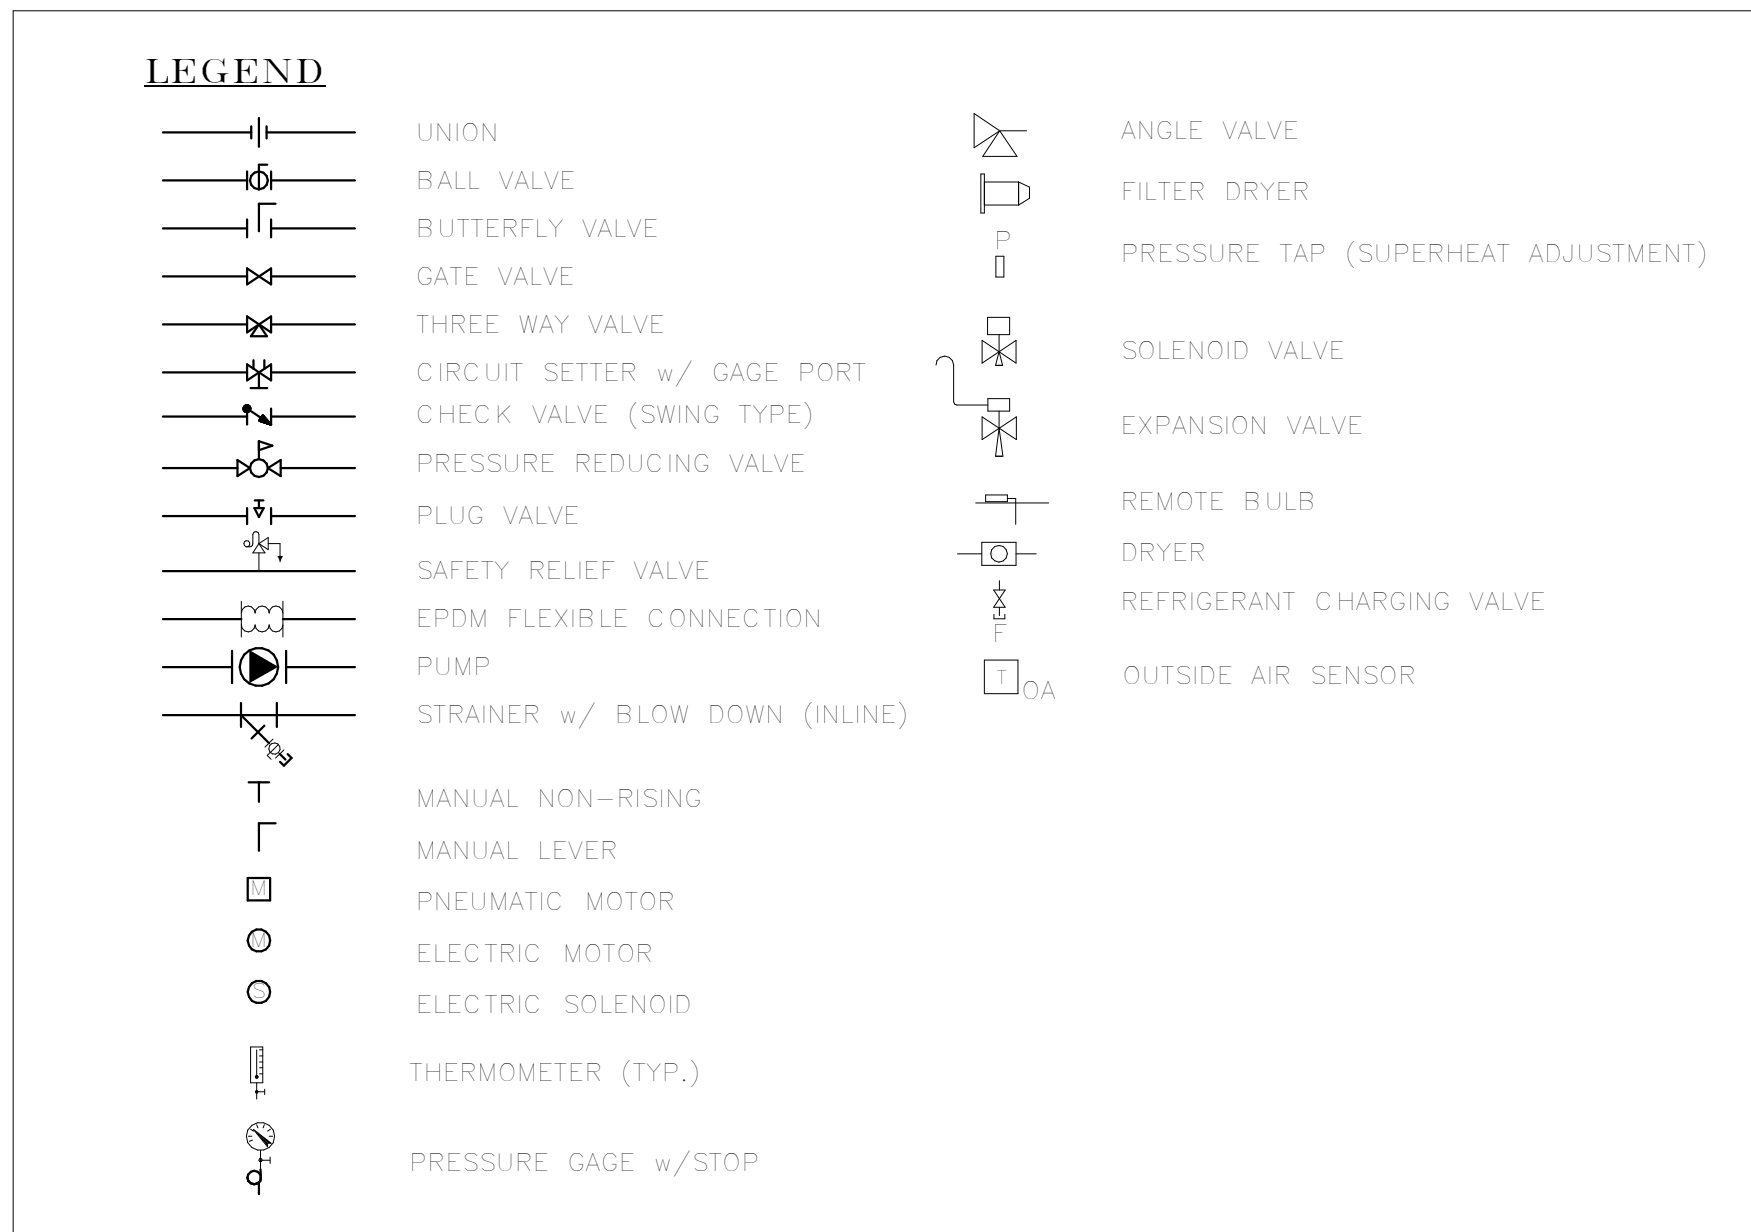 LEGEND
UNION
BALL VALVE
BUTTERFLY VALVE
GATE VALVE
THREE WAY VALVE
CIRCUIT SETTER w/ GAGE PORT
CHECK VALVE (SWING TYPE)
PRESSURE REDUCING VALVE
PLUG VALVE
SAFETY RELIEF VALVE
EPDM FLEXIBLE CONNECTION
PUMP
STRAINER w/ BLOW DOWN (INLINE)
MANUAL NON-RISING
MANUAL LEVER
M
PNEUMATIC MOTOR
M
ELECTRIC MOTOR
S
ELECTRIC SOLENOID
THERMOMETER (TYP.)
PRESSURE GAGE w/STOP
ANGLE VALVE
FILTER DRYER
P
PRESSURE TAP (SUPERHEAT ADJUSTMENT)
SOLENOID VALVE
EXPANSION VALVE
REMOTE BULB
DRYER
REFRIGERANT CHARGING VALVE
F
T OA
OUTSIDE AIR SENSOR